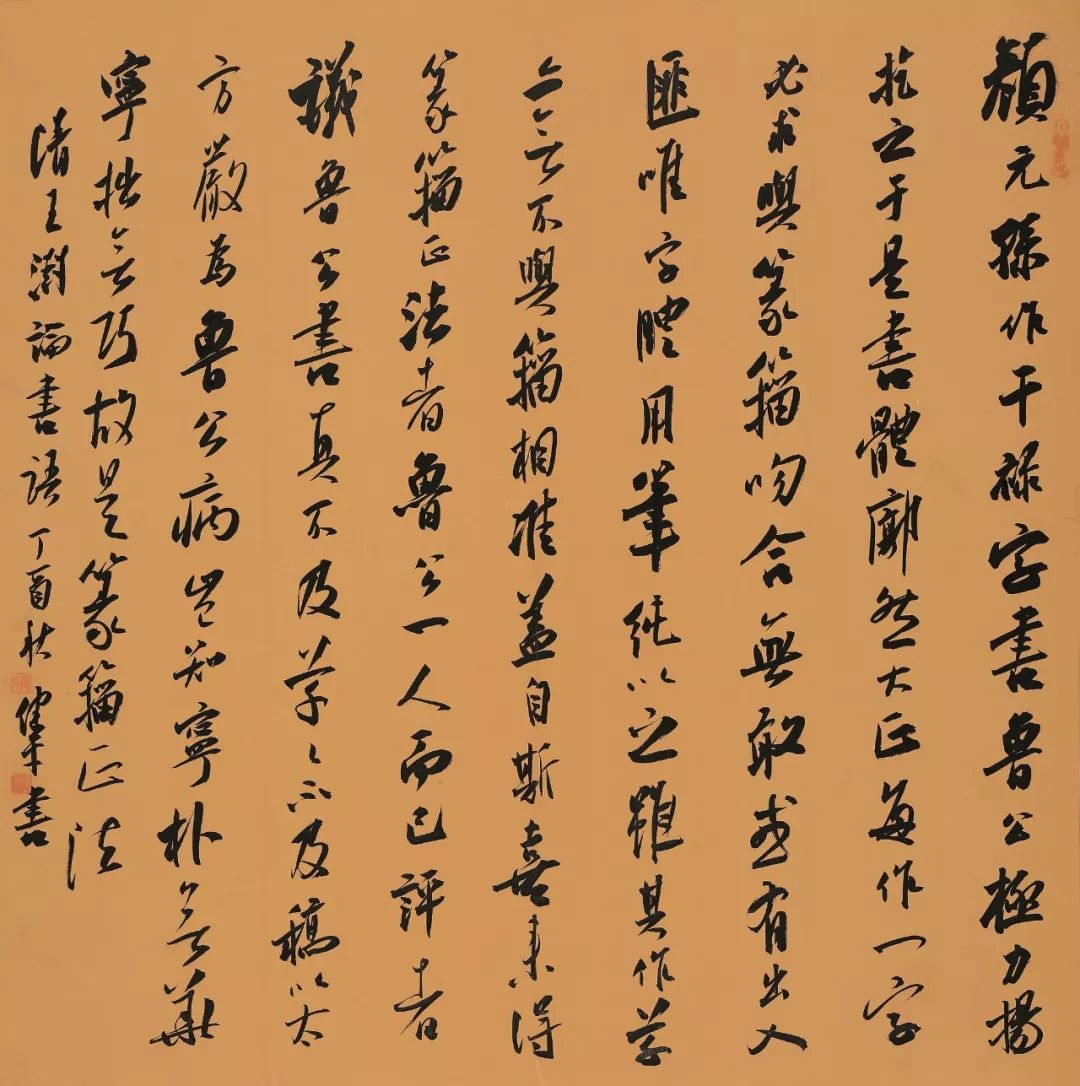 顔元孫作干禄字書魯公極力揚
扢之于是書體廓然大正每作一字
必求與篆籀吻合無敢或有出入
匪唯字體用筆純以之雖其作草
亦無不與籀相准蓋自斯喜来得
篆籀正法者魯公一人而已評者
議魯公書真不及草草不及稿以太
方嚴為魯公病豈知寧朴無華
寧拙無巧故是篆籀正法
清王澍論書語丁酉秋健書